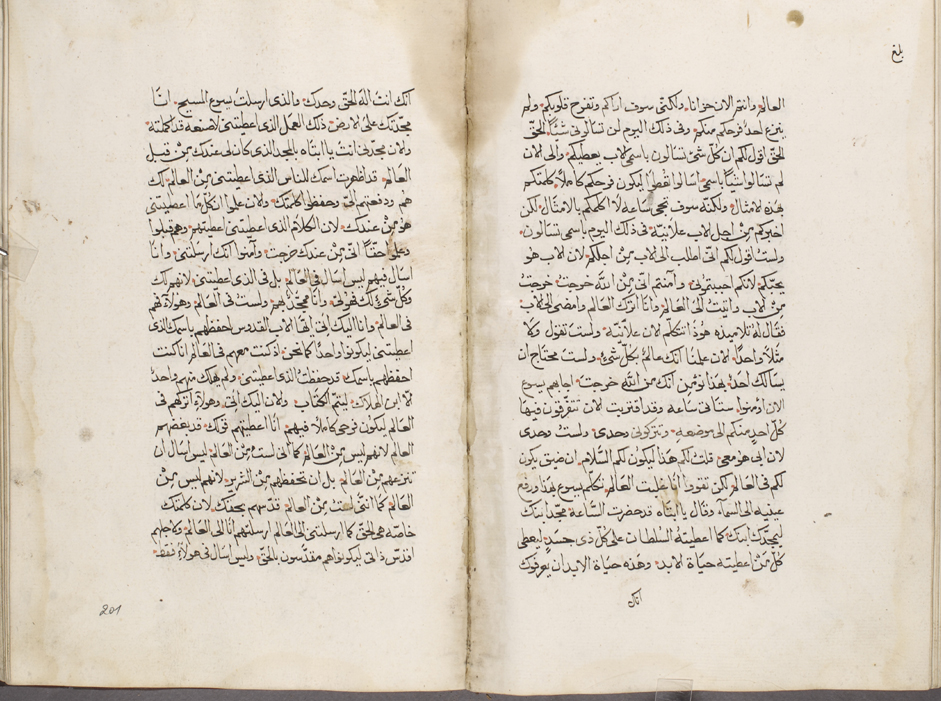 بلغ
العالم وانتم الان حزانا. ولكني سوف اراكم وتفرح قلوبكم. ولم
ينزع احد فرحكم منكم. وفي ذلك اليوم لن تسالوني شيئاً. الحق
الحق اقول لكم ان كل شي تسالون باسمي الاب يعطيكم. والى الان
لم تسالوا شيئاً باسمي. اسالوا تعطوا ليكون فرحكم كاملاً. كلمتكم
بهذه الامثال. ولكنه سوف تجي ساعة لا اكلمكم بالامثال. لكن
اخبركم من اجل الاب علانية. في ذلك اليوم باسمي تسالون.
ولست اقول لكم اني اطلب الى الاب من اجلكم. لان الاب هو
يحبكم. لانكم احببتموني. وآمنتم اني من الله خرجت. خرجت
من الاب. واتيت الى العالم. وانا اترك العالم وامضي الى الاب.
فقال له تلاميذه هوذا تتكلم الان علانية. ولست تقول ولا
مثلاً واحداً. الان علمنا انك عالم بكل شي. ولست محتاج ان
يسالك احد. بهذا نومن انك من الله خرجت. اجابهم يسوع
الان آمنوا. ستاتي ساعة وقد اقتربت الان تتفرقون فيها
كل احد منكم الى موضعه. وتتركوني وحدي. ولست وحدي
لان ابي هو معي. قلت لكم هذا ليكون لكم السلام. ان ضيق يكون
لكم في العالم. لكن تقووا انا غلبت العالم. تكلم يسوع بهذا ورفع
عينيه الى السمآء وقال يا ابتاه قد حضرت الساعة. مجد ابنك
ليمجدك ابنك. كما اعطيته السلطان على كل ذي جسد. ليعطي
كل من اعطيته حياة الابد. وهذه حياة الابد ان يعرفوك
انك
انك انت اله الحق وحدك. والذي ارسلت يسوع المسيح. انا
مجدتك على الارض. ذلك العمل الذي اعطيتني لاصنعه قد اكملته.
والان مجدني انت يا ابتاه بالمجد الذي كان لي عندك من قبل
العالم. قد اظهرت اسمك للناس الذي اعطيتني من العالم. لك
هم ودفعتهم الي وحفظوا كلمتك. والان علموا ان كل ما اعطيتني
هو من عندك. لان الكلام الذي اعطيتني اعطيتهم. وهم قبلوا
وعلموا حقاً اني من عندك خرجت. وآمنوا انك ارسلتني. وانا
اسال فيهم ليس اسال في العالم. بل في الذي اعطيتني. لانهم لك
وكل شي لك فهو لي. وانا ممجد بهم. ولست في العالم. وهولاء هم
في العالم. وانا اليك اتي. ايها الاب القدوس احفظهم باسمك الذي
اعطيتني ليكونوا واحداً كما نحن. اذ كنت معهم في العالم انا كنت
احفظهم باسمك. قد حفظت الذي اعطيتني. ولم يهلك منهم واحد
الا ابن الهلاك. ليتم الكتاب. والان اليك اتي. وهولاء اتركهم في
العالم ليكون فرحي كاملاً فيهم. انا اعطيتهم قولك. قد بغضهم
العالم لانهم ليس من العالم. كما اني لست من العالم. ليس اسال ان
تنزعهم من العالم. بل ان تحفظهم من الشرير. لانهم ليس من
العالم. كما انني لست من العالم. قدسهم بحقك. لان كلمتك
خاصة هي الحق. كما ارسلتني الى العالم ارسلتهم انا الى العالم. ولاجلهم
اقدس ذاتي ليكونوا هم مقدسون بالحق. وليس اسال في هولاء فقط.
201